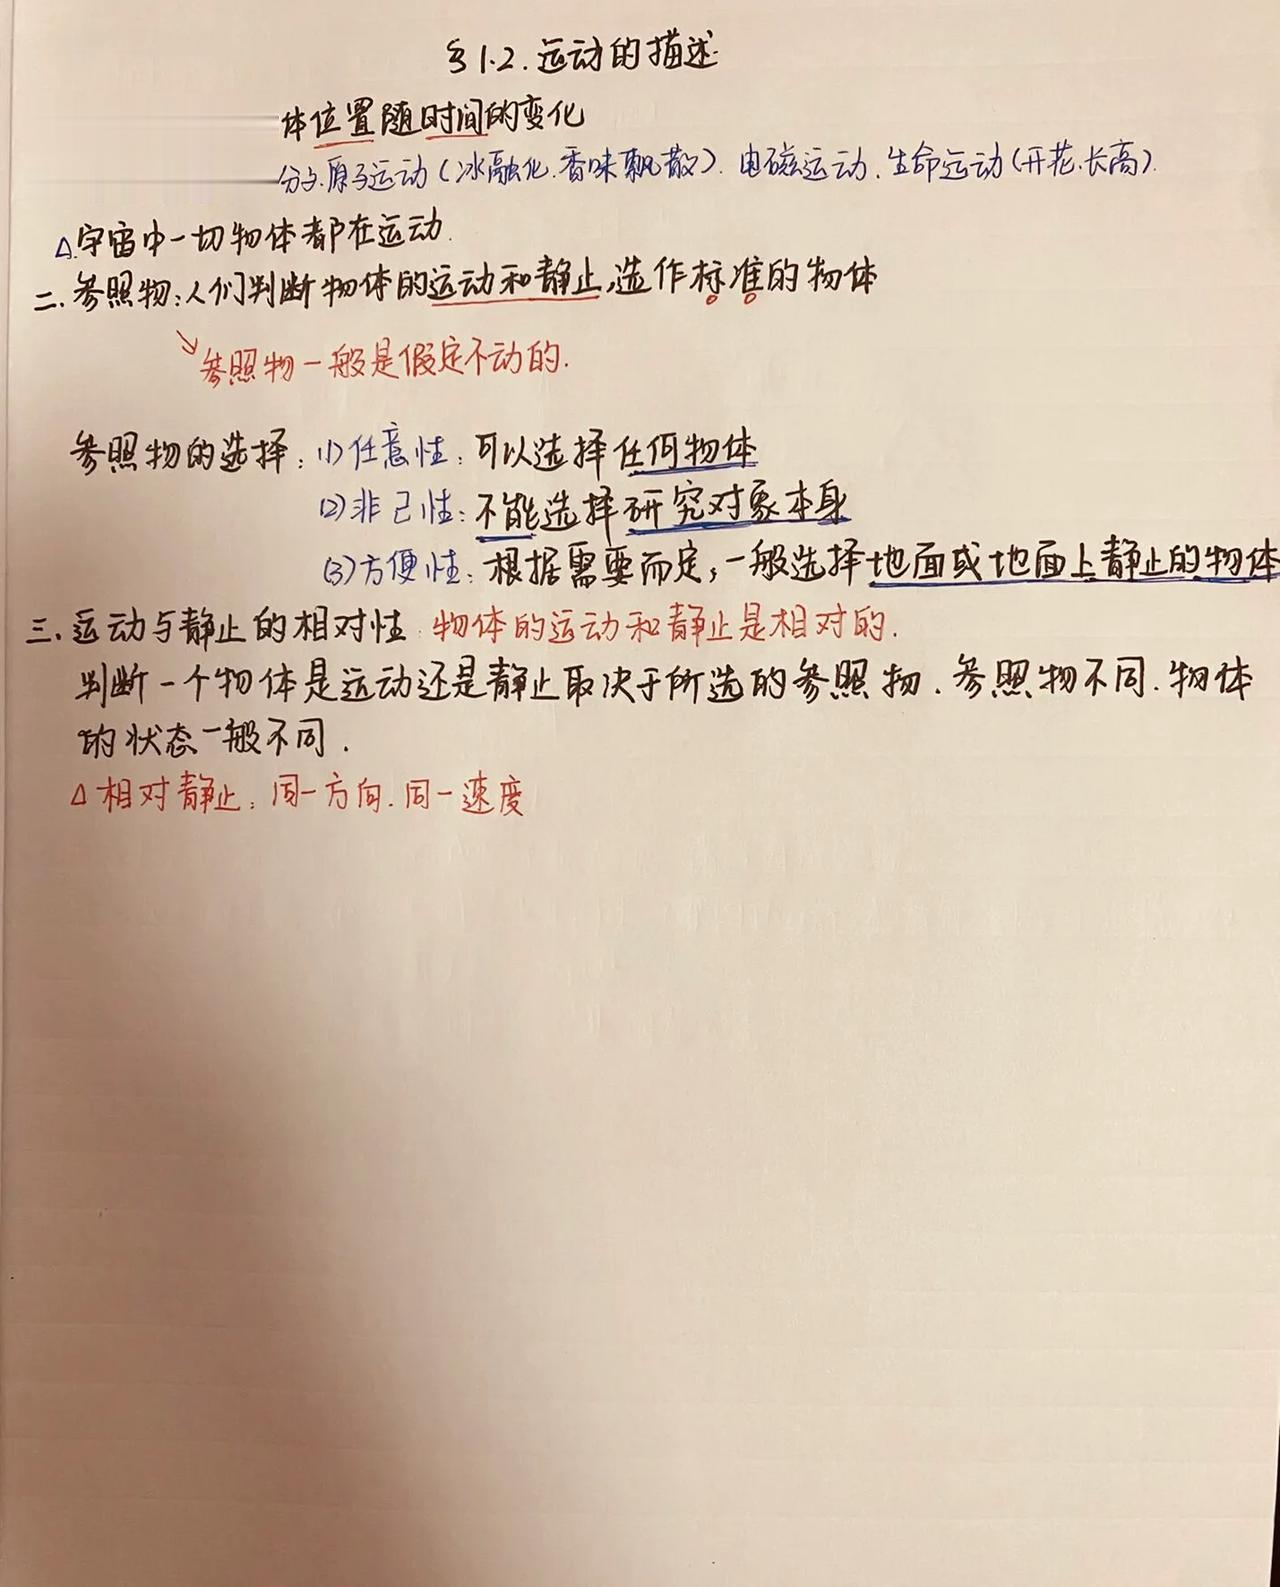 §1.2.运动的描述
体位置随时间的变化
分子.原子运动(冰融化.香味飘散).电磁运动.生命运动(开花.长高).
△宇宙中一切物体都在运动.
二.参照物:人们判断物体的运动和静止,选作标准的物体
参照物一般是假定不动的.
参照物的选择:(1)任意性:可以选择任何物体
(2)非己性:不能选择研究对象本身
(3)方便性:根据需要而定,一般选择地面或地面上静止的物体
三.运动与静止的相对性.物体的运动和静止是相对的.
判断一个物体是运动还是静止取决于所选的参照物.参照物不同.物体
的状态一般不同.
△相对静止:同一方向.同一速度